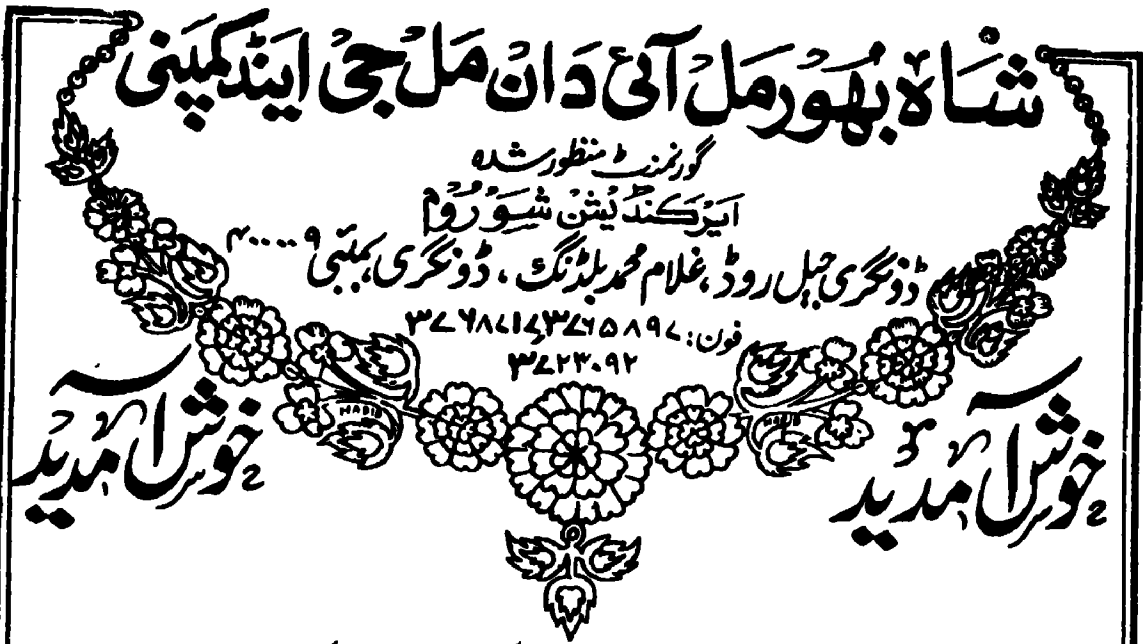 شاہ بھورمل آئی دان مل جی اینڈ کمپنی
گورنمنٹ منظور شدہ
ایئر کنڈیشن شوروُم
ڈونگری جیل روڈ، غلام محمد بلڈنگ، ڈونگری، بمبئی ۴۰۰۰۰۹
فون: ۳۷۶۵۸۹۷، ۳۷۶۸۷۱۷
۳۷۲۳۰۹۲
خوش آمدید
خوش آمدید
HABIB
HABIB